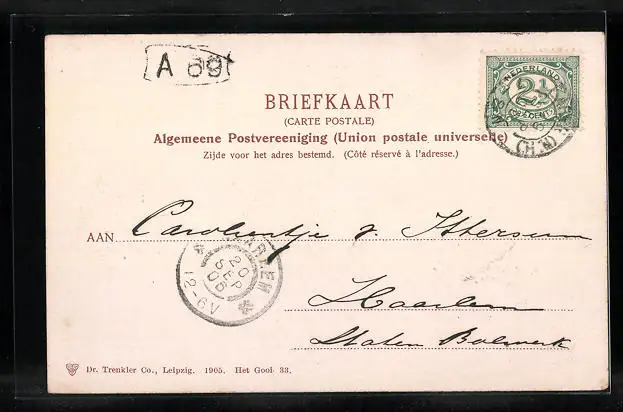 A 69
NEDERLAND
2½
CENT
BRIEFKAART
(CARTE POSTALE)
Algemeene Postvereeniging (Union postale universelle)
Zijde voor het adres bestemd. (Côté réservé à l'adresse.)
(N.H)
AAN Carolientje v. Ittersum
HAARLEM
20 SEP 06
12-6V
Haarlem
Staten Bolwerk
Dr. Trenkler Co., Leipzig. 1905. Het Gooi 33.